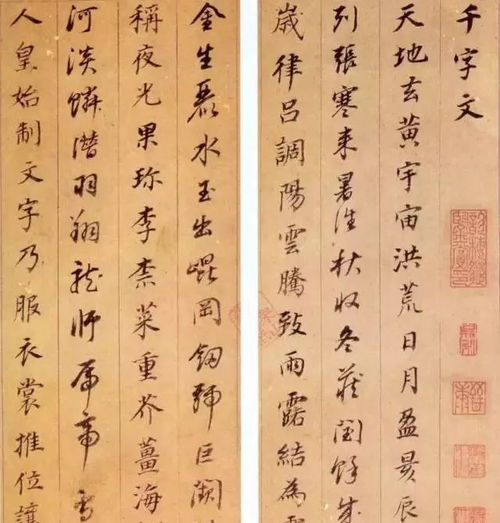 千字文
天地玄黄宇宙洪荒日月盈昃辰
列張寒来暑往秋收冬藏閏餘成
歲律吕調陽雲騰致雨露結為
金生麗水玉出崐岡劒號巨闕
稱夜光果珎李柰菜重芥薑海
河淡鱗潛羽翔龍師帝鳥
人皇始制文字乃服衣裳推位讓